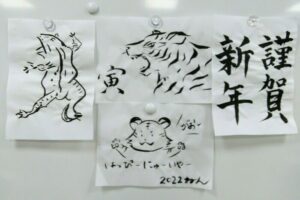 謹賀
新年
寅
がおー
はっぴーにゅーいやー
2022ねん